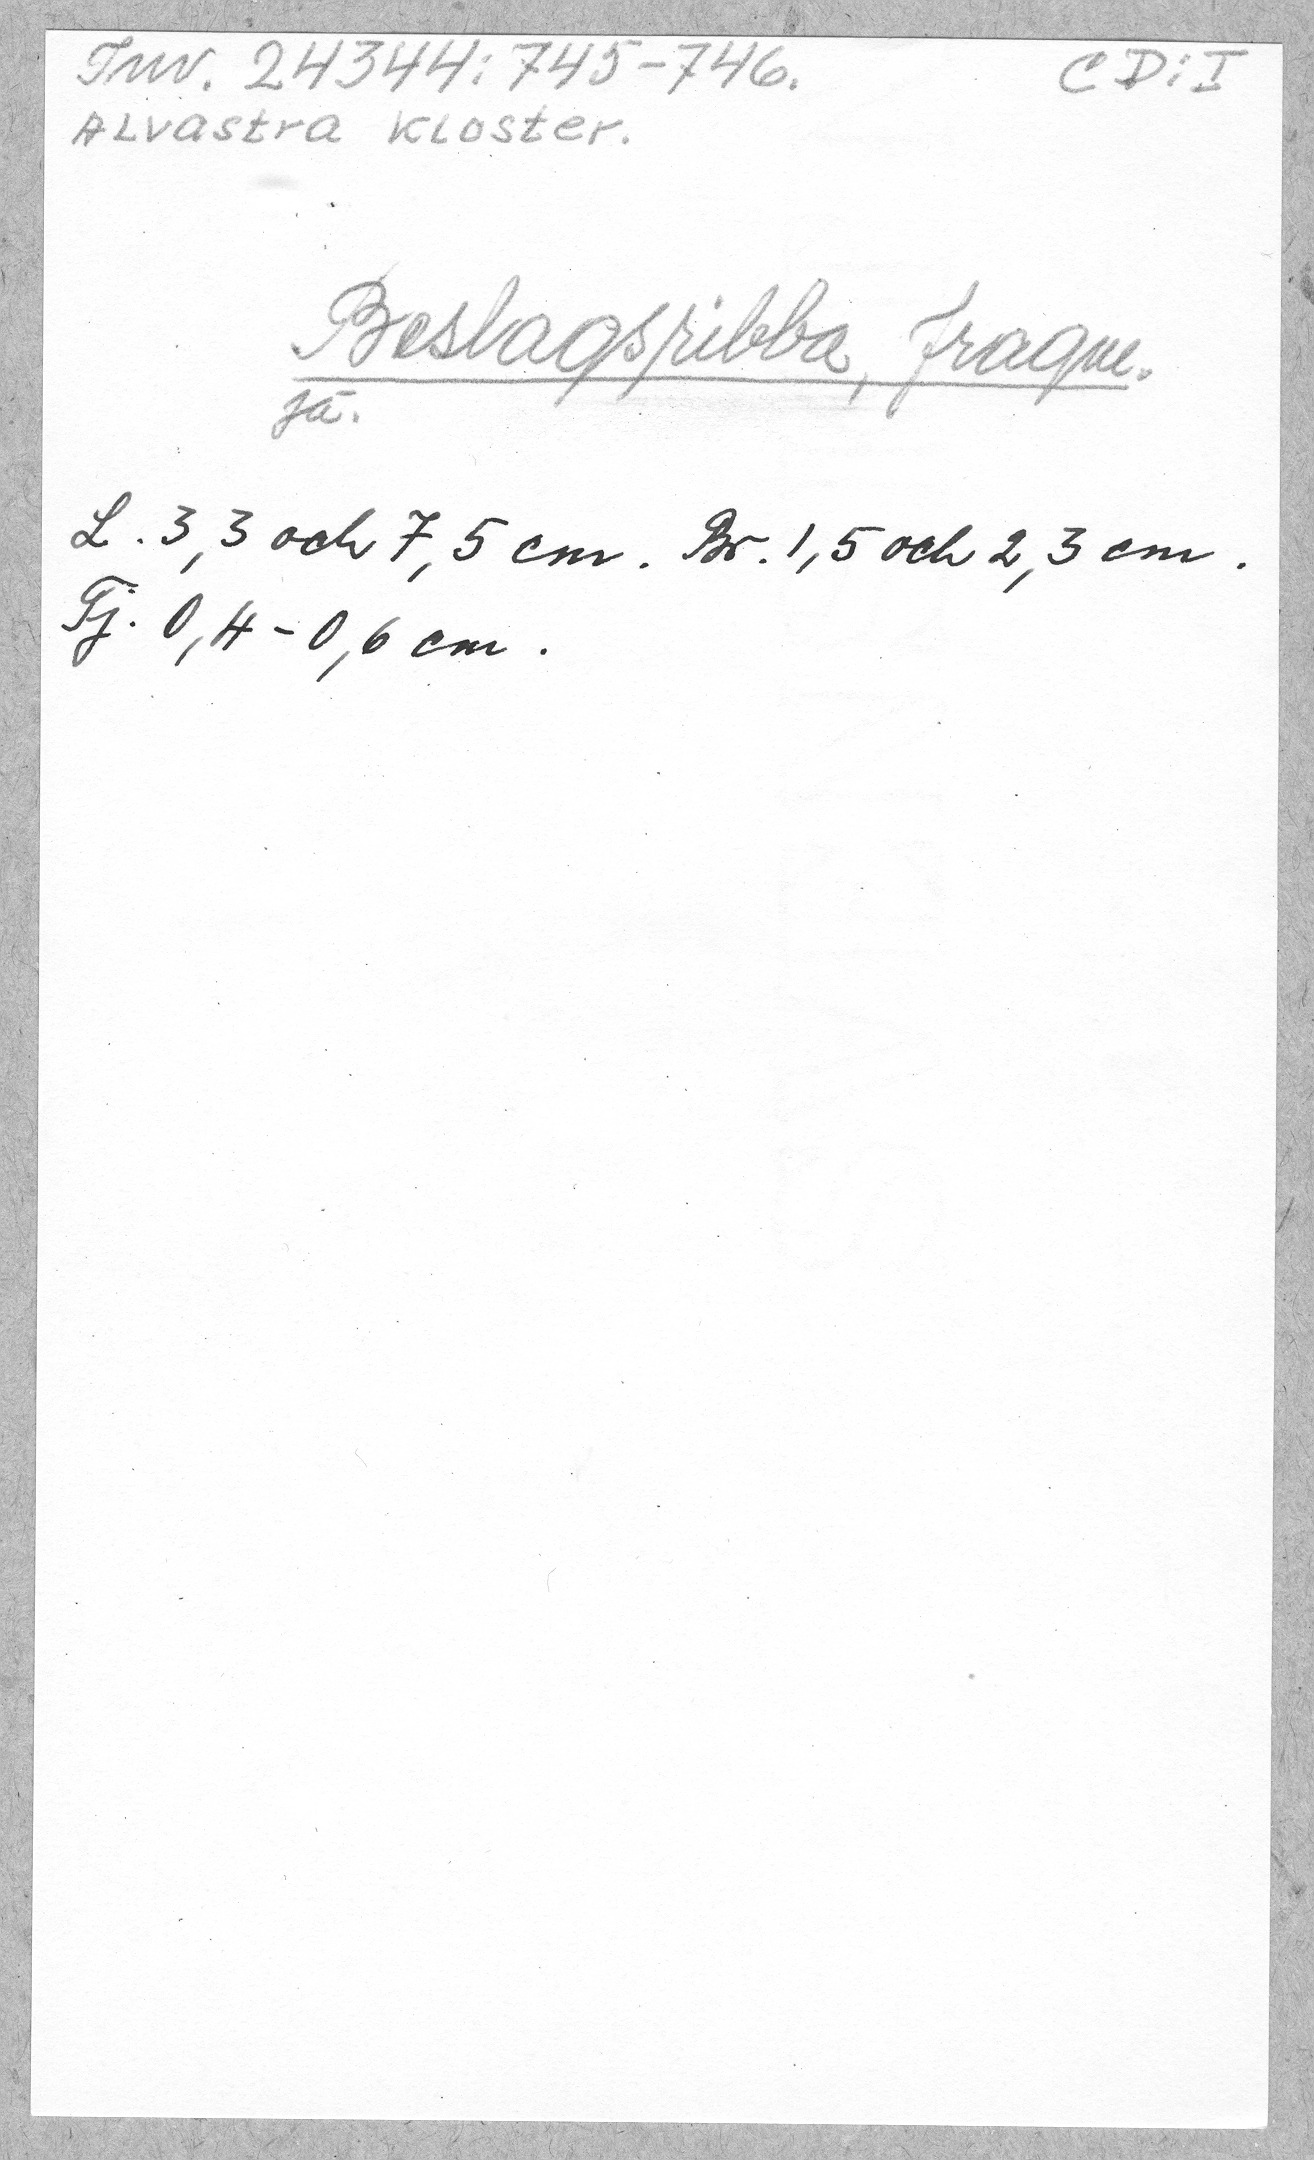 Inv. 24344:745-746. CD:I
Alvastra kloster.
Beslagsribba, fragm.
jä.
L. 3,3 och 7,5 cm. Br. 1,5 och 2,3 cm.
Tj. 0,4-0,6 cm.